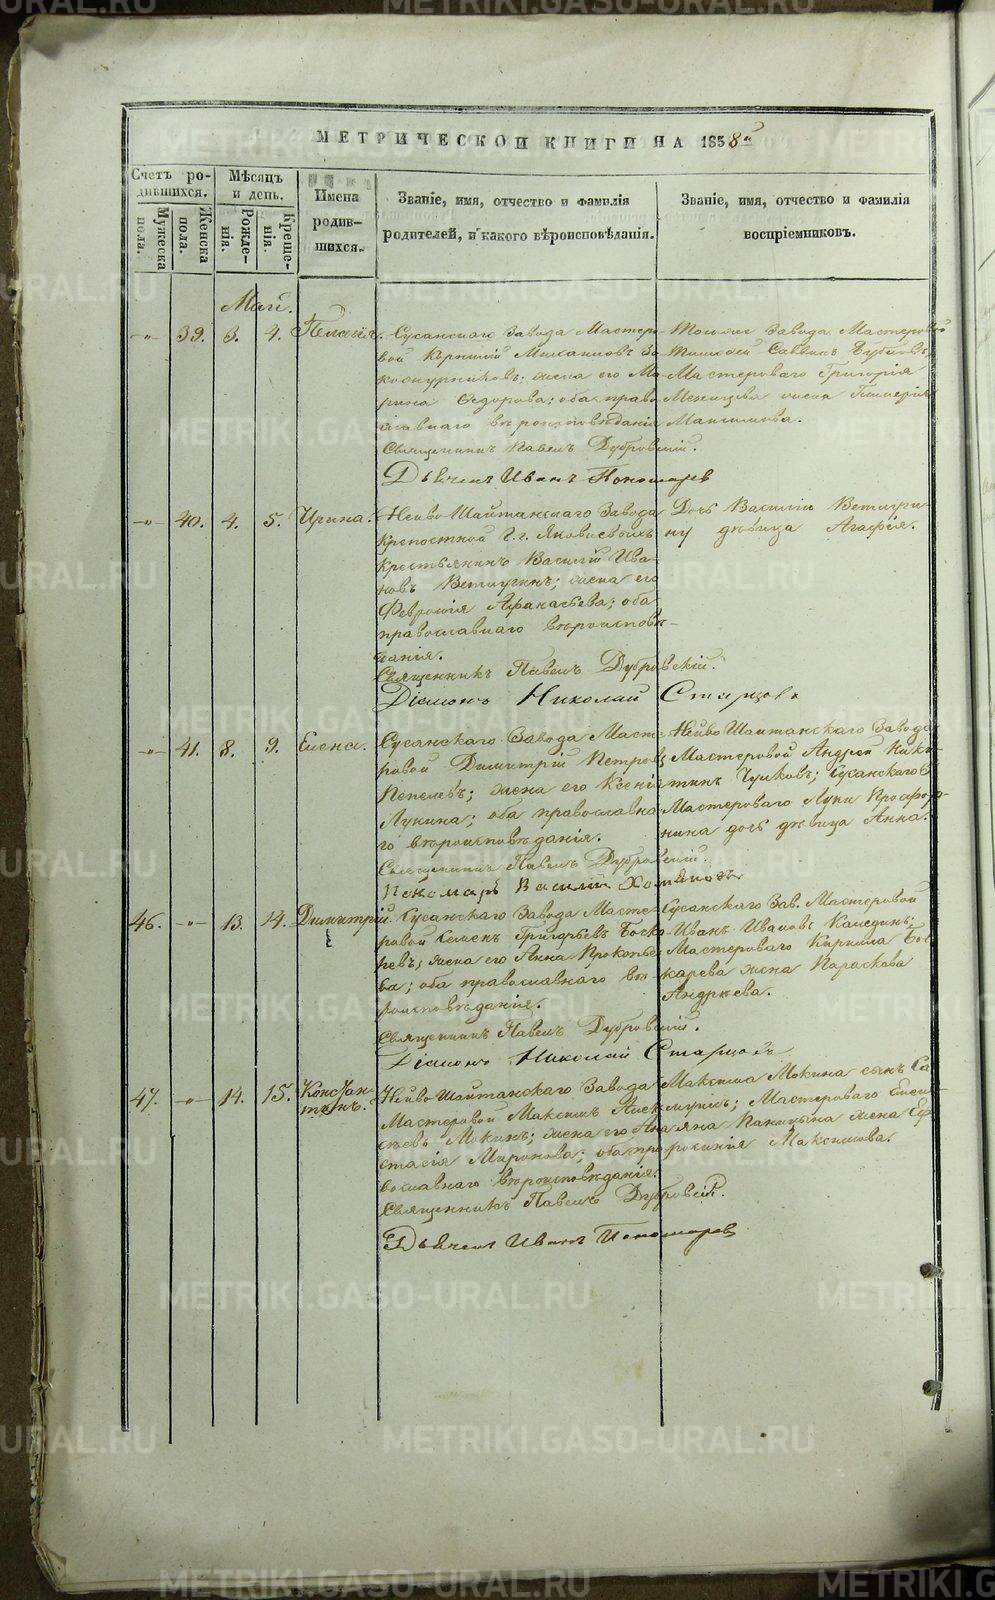 МЕТРИЧЕСКОЙ КНИГИ НА 1858й
Счетъ родившихся.
Мѣсяцъ и день.
Имена родившихся.
Званіе, имя, отчество и фамилія родителей, и какого вѣроисповѣданія.
Званіе, имя, отчество и фамилія воспріемниковъ.
Мужеска пола.
Женска пола.
Рожденія.
Крещенія.
Май.
-"- 39. 3. 4. Пелагія.
Сусанскаго Завода Мастеро-
вой Михаиловъ За-
жена его Ма-
рина Ѳедорова; оба право-
славнаго вѣроисповѣданія
Священникъ Павелъ Дубровскій.
Дьячекъ Иванъ Пономарев
Тогоже Завода Мастеровой
Саввинъ
Мастероваго Григорія
жена
Максимова.
-"- 40. 4. 5. Ирина.
Нейво Шайтанскаго Завода
Крепостной Г. г. Яковлевыхъ
крестьянинъ Василій Ива-
новъ Ветлугинъ; жена его
Феврошія Афанасьева; оба
православнаго вѣроисповѣ-
данія.
Священникъ Павелъ Дубровскій.
Діаконъ Николай Старцовъ
Дочь Василія Ветлуги-
ну дѣвица Агафія.
-"- 41. 8. 9. Елена.
Сусанскаго Завода Масте-
ровой Димитрій Петровъ
Пепелевъ; жена его Ксенія
Лукина; оба православна-
го вѣроисповѣданія.
Священникъ Павелъ Дубровскій.
Пономарь Василій Хомяковъ
Нейво Шайтанскаго Завода
Мастеровой Андрей Ники-
тинъ Чушковъ; Сусанскаго З.
Мастероваго Луки Просфор-
нина дочь дѣвица Анна.
46. -"- 13. 14. Димитрій.
Сусанскаго Завода Масте-
ровой Семенъ Григорьевъ Боска-
ревъ; жена его Анна Прокопье-
ва; оба православнаго вѣ-
роисповѣданія.
Священникъ Павелъ Дубровскій.
Діаконъ Николай Старцовъ
Сусанскаго Зав. Мастеровой
Иванъ Ивановъ Каледикъ;
Мастероваго Кирилла Бос-
карева жена Параскова
Андрѣева.
47. -"- 14. 15. Констан-
тинъ.
Нейво Шайтанскаго Завода
Мастеровой Максимъ Алек-
сѣевъ Мокинъ; жена его Ана-
стасія Миронова; оба пра-
вославнаго вѣроисповѣданія.
Священникъ Павелъ Дубровскій.
Дьячекъ Иванъ Пономарев
Максима Мокина сынъ Са-
Мастероваго
жена
Максимова.
METRIKI.GASO-URAL.RU